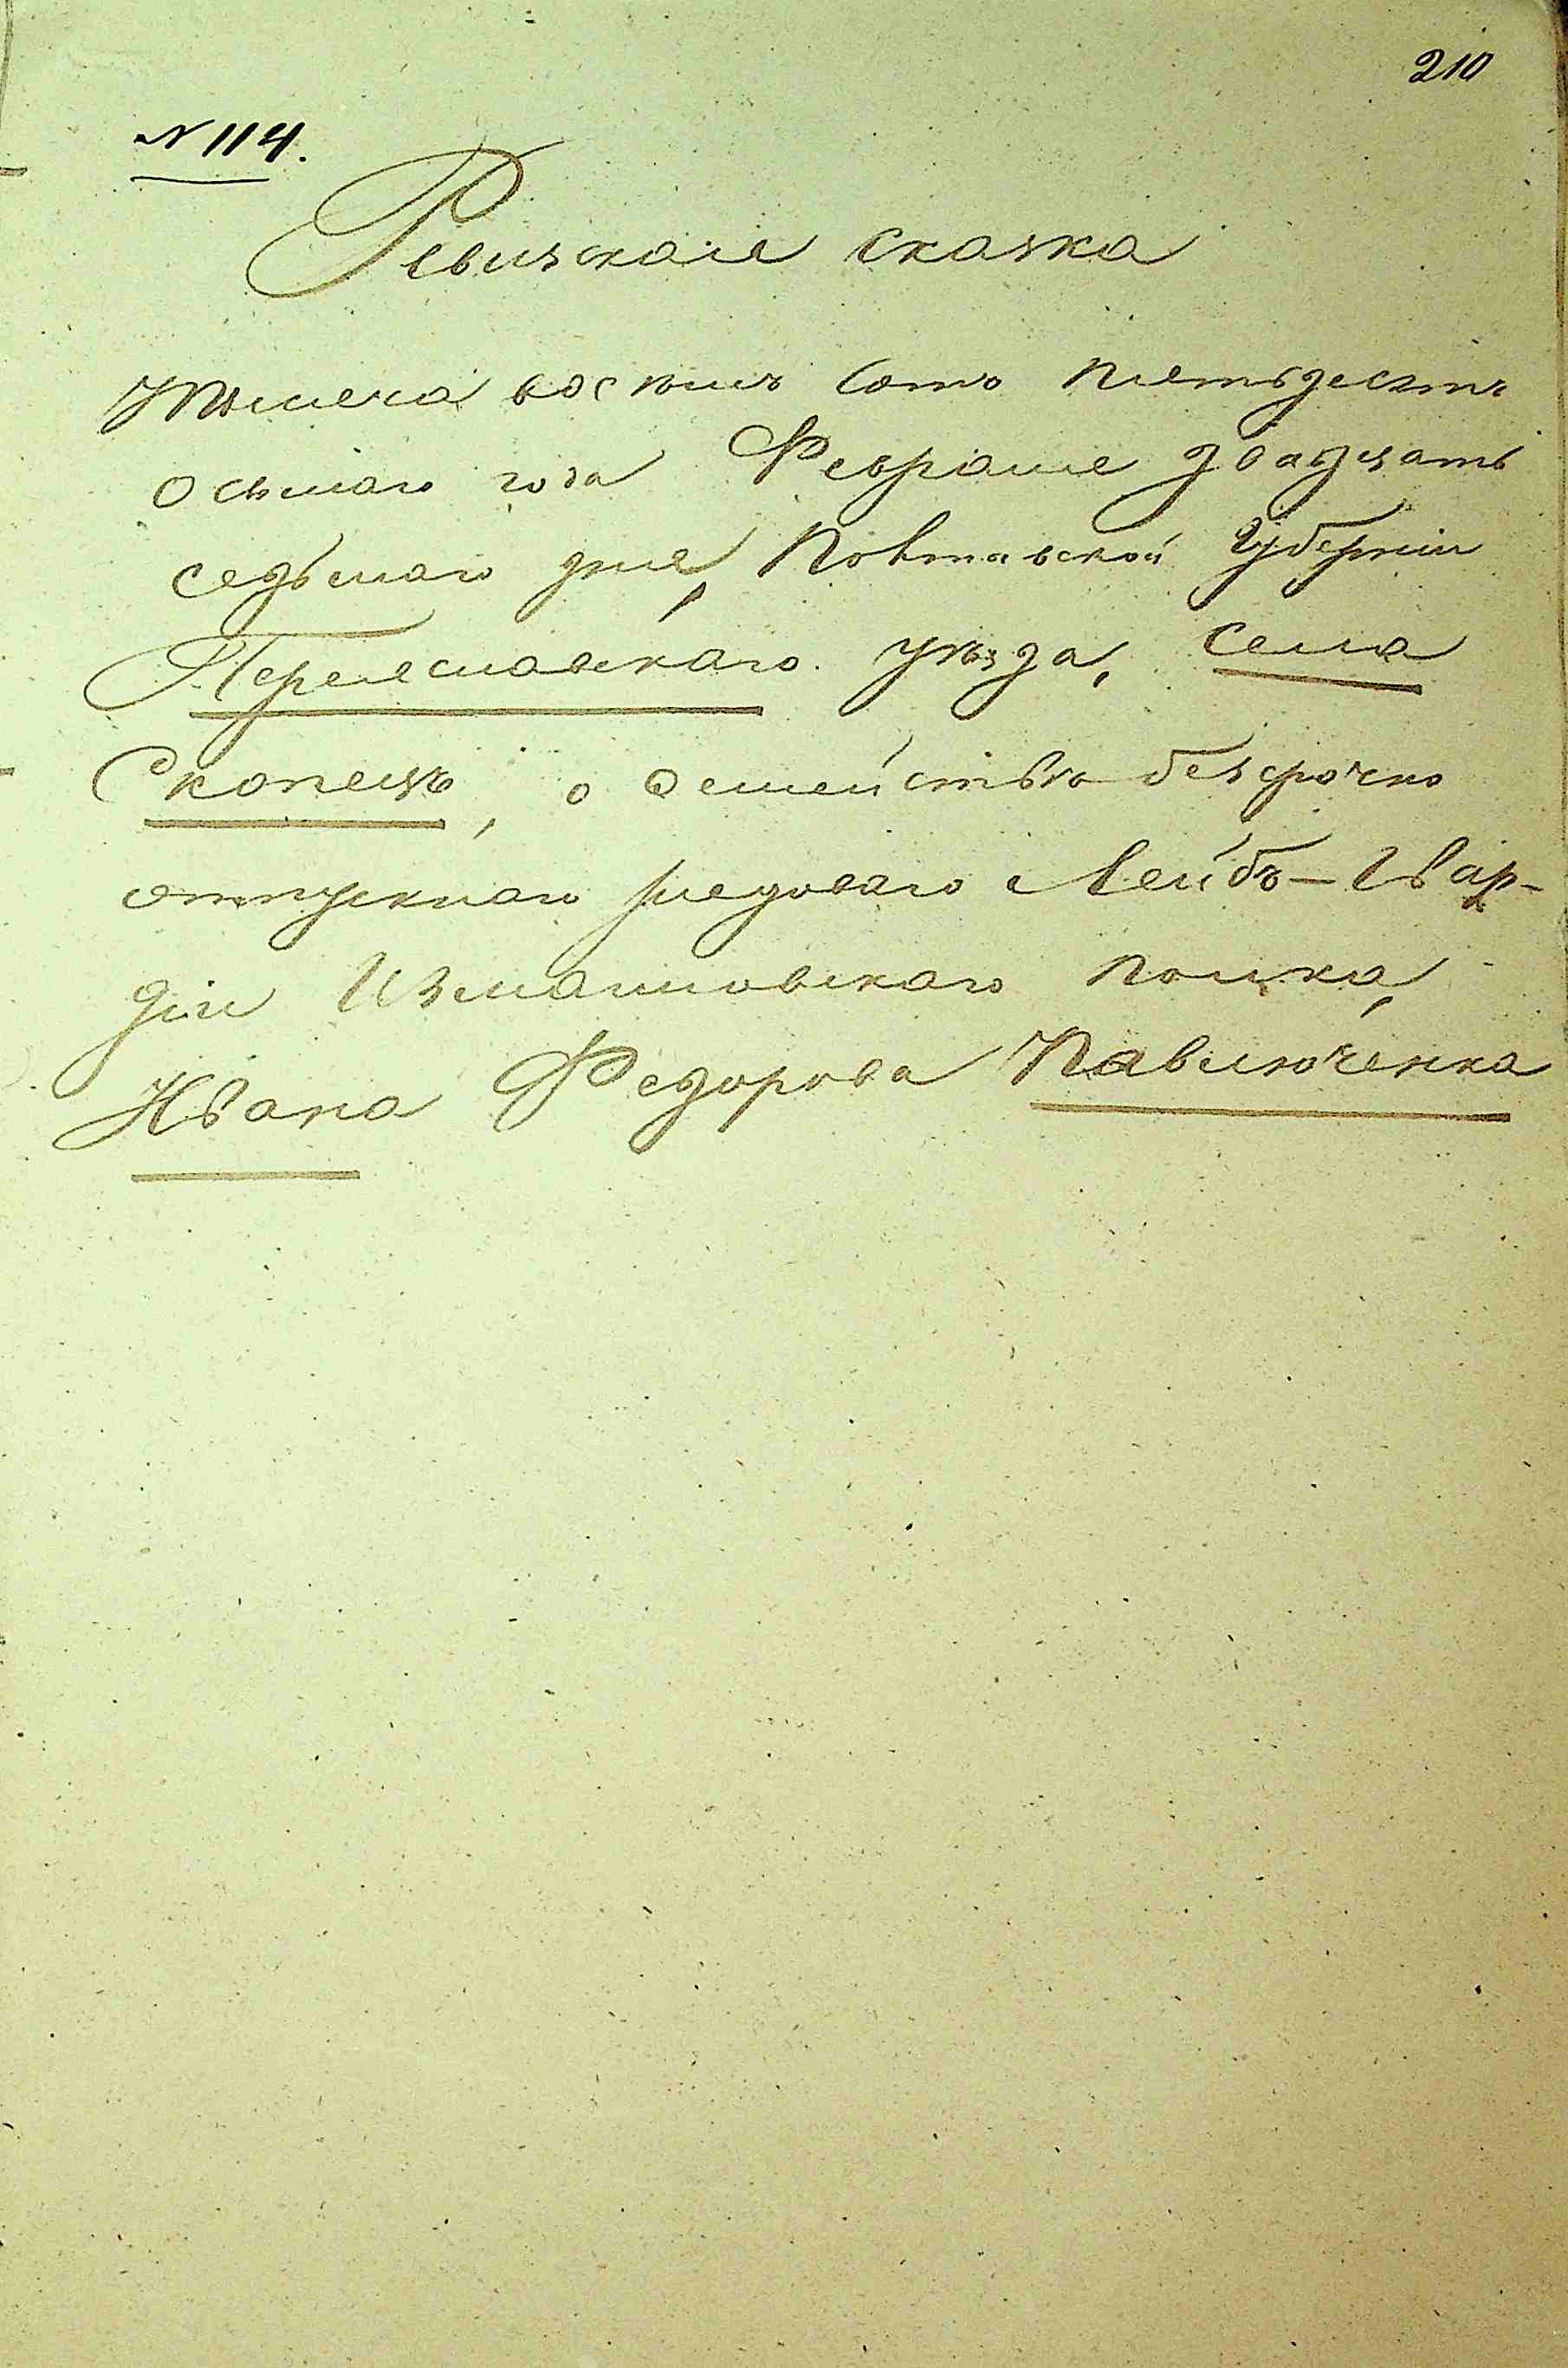 210
№ 114.
Ревизская сказка
Тысяча восемь сотъ пятьдесятъ
осьмаго года Февраля двадцать
седьмаго дня, Полтавской Губерніи
Переяславскаго уѣзда, села
Скопецъ, о семействѣ безсрочно
отпускнаго рядоваго Лейбъ-Гвар-
діи Измайловскаго полка,
Ивана Федорова Павлюченка